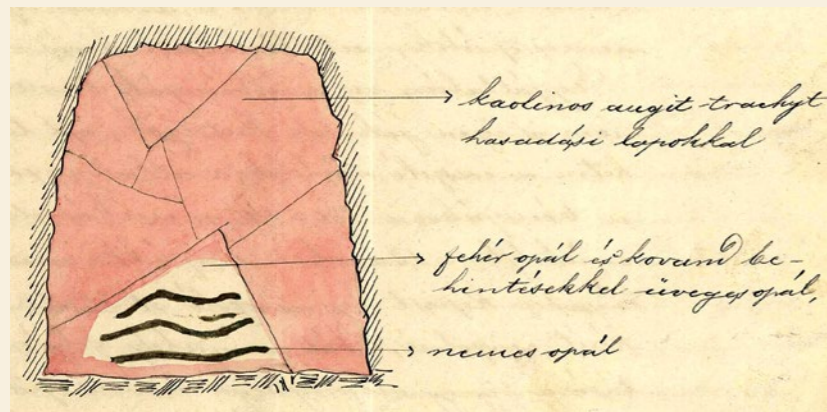 kaolinos augit-trachyt
hasadási lapokkal
fehér opál és kovand be-
hintésekkel üveges opál,
nemes opál